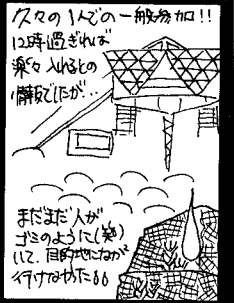 久々の1人での一般参加!!
12時過ぎれば
楽々入れるとの
情報でしたが…
まだまだ人が
ゴミのように(笑)
いて、目的地になか
行けなかった